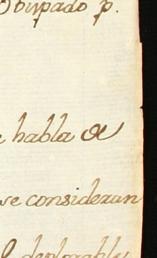 Obispado p.
e habla de
se consideran
deplorable